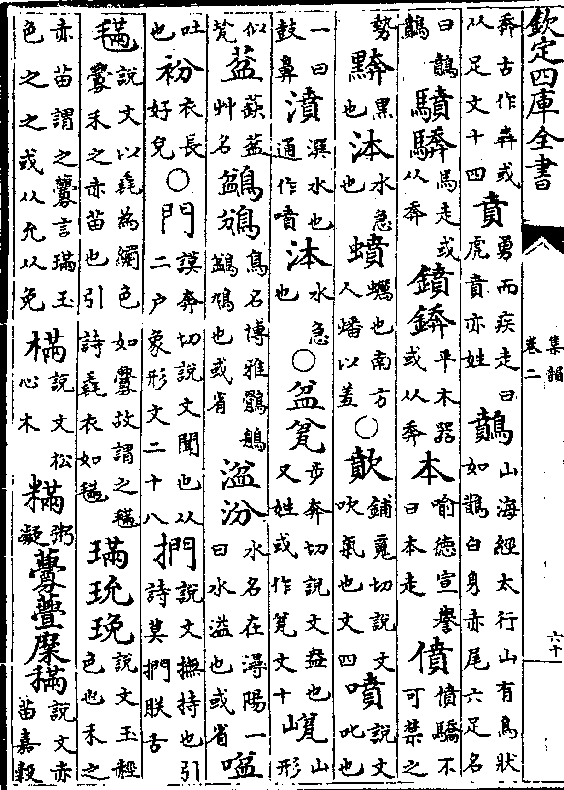 欽定四庫全書 集韻 卷二
奔古作犇或从足文十四 賁 勇而疾走曰虎賁亦姓 鷬 山海經太行山有鳥狀如鵲白身赤尾六足名
曰鷬鵲 驞驞 馬走或从奔 鐼錛 平木器或从奔 本 喻德宣譽曰本走 僨 僨驕不可禁之
勢 黑也 泍 水急也 蟦 蠾也南方人燔以羞 ○ 歕 鋪䰟切說文吹氣也文四 噴 說文叱也
一曰鼓鼻 濆 潠水也通作噴 泍 水急也 ○ 盆瓫 步奔切說文盎也又姓或作瓫文十 山形
似甕 葐 蒛葐艸名 鳥名博雅 鳩也或省 湓汾 水名在潯陽一曰水溢也或省 㖹
吐也 衯 衣長好皃 ○ 門 謨奔切說文聞也从二户象形文二十八 捫 說文撫持也引詩莫捫朕舌
𣯩 說文以毳為繝色如虋故謂之𣯩虋禾之赤苗也引詩毳衣如𣯩 璊玧 說文玉䞓色也禾之
赤苗謂之虋言璊玉色之之或从允从免 樠 說文松心木 粥凝 虋 說文赤苗嘉穀